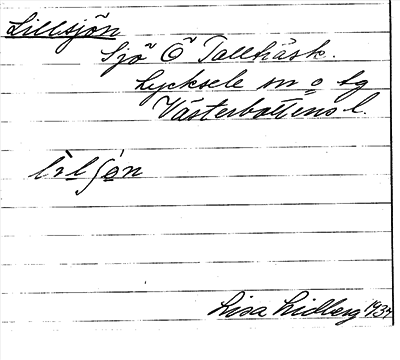 Lillsjön
Sjö Ö Tallträsk.
Lycksele sn o tg
Västerbottens l.
Lisa Lidberg 1934